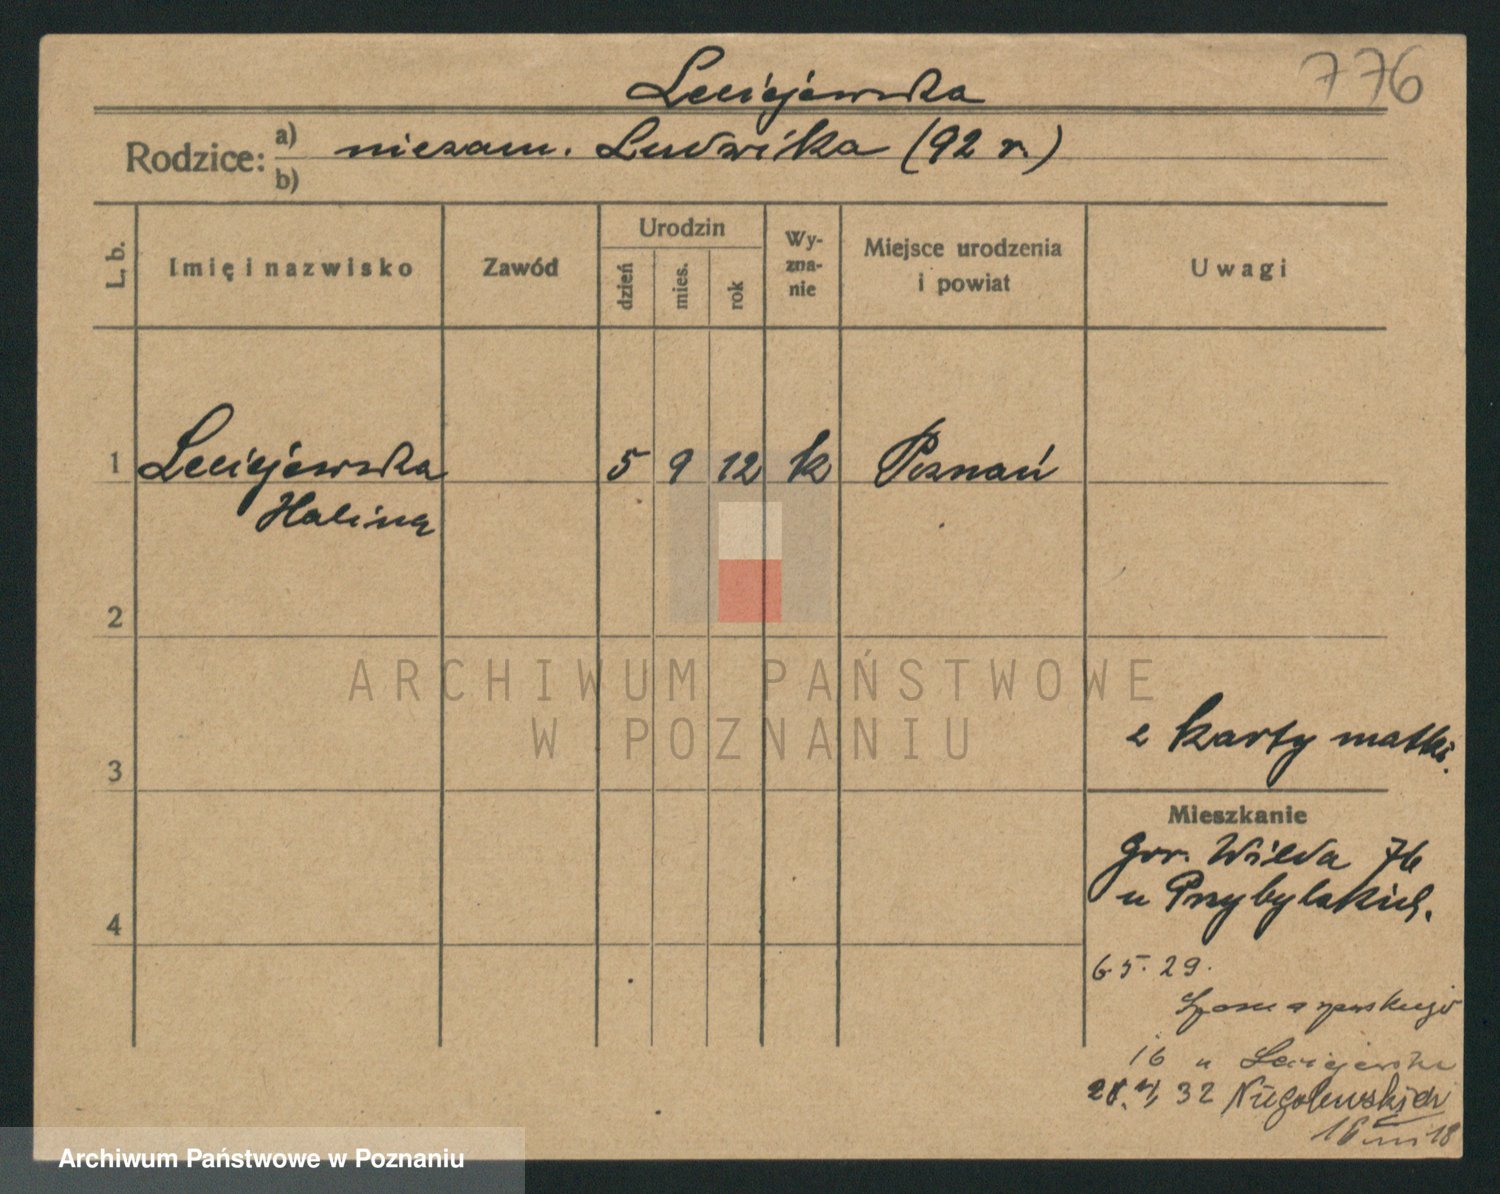 776
Leciejewska
Rodzice: a) niezam. Ludwika (92 r.)
b)
L. b.
Imię i nazwisko
Zawód
Urodzin
dzień
mies.
rok
Wy-
zna-
nie
Miejsce urodzenia
i powiat
Uwagi
1 Leciejewska 5 9 12 k Poznań
Halina
2
ARCHIWUM PAŃSTWOWE
W POZNANIU
z karty matki.
3
Mieszkanie
Gór. Wilda 76
u Przybylskich.
4
6 5. 29.
16 u Leciejewska
28. 32 Niegolewskich
16 18
Archiwum Państwowe w Poznaniu